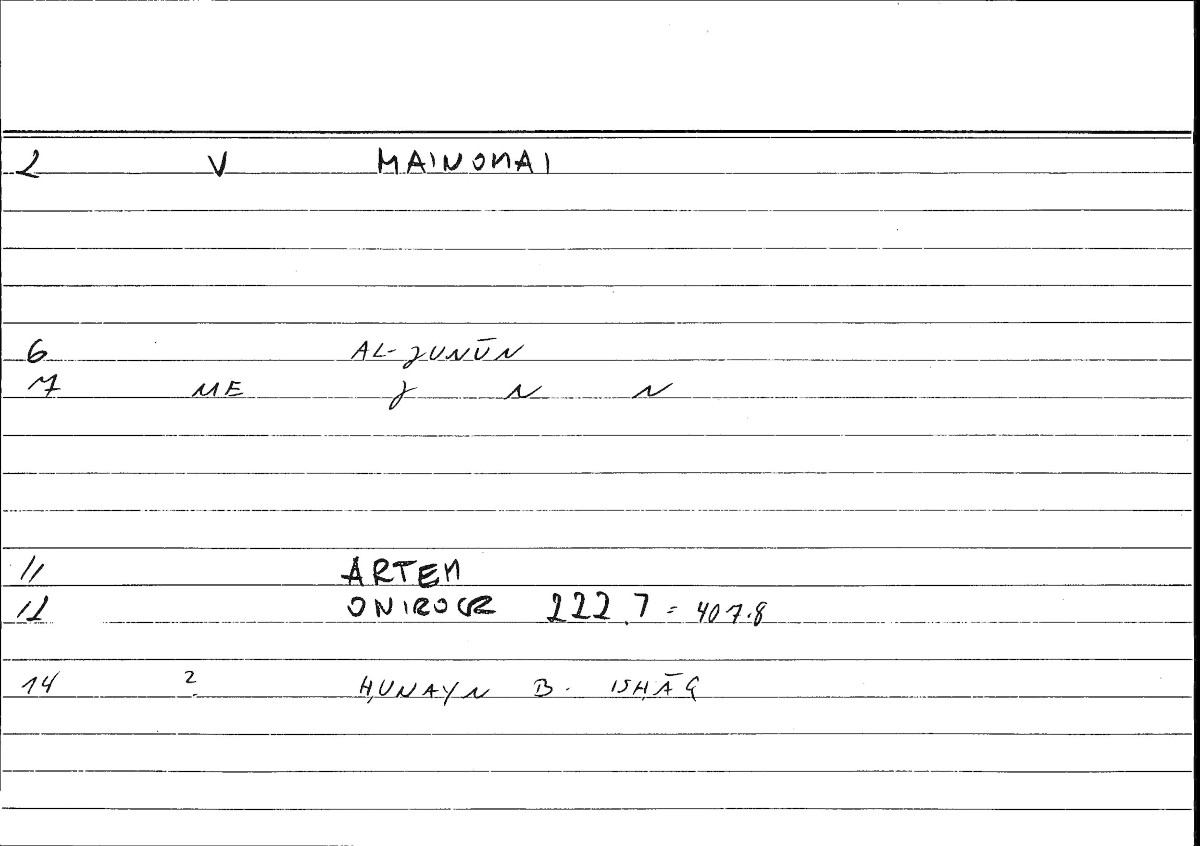 2 V MAINOMAI
6 AL-JUNŪN
7 ME J N N
11 ARTEM
12 ONIROCR 222.7 = 407.8
14 2 ḤUNAYN B. ISḤĀQ